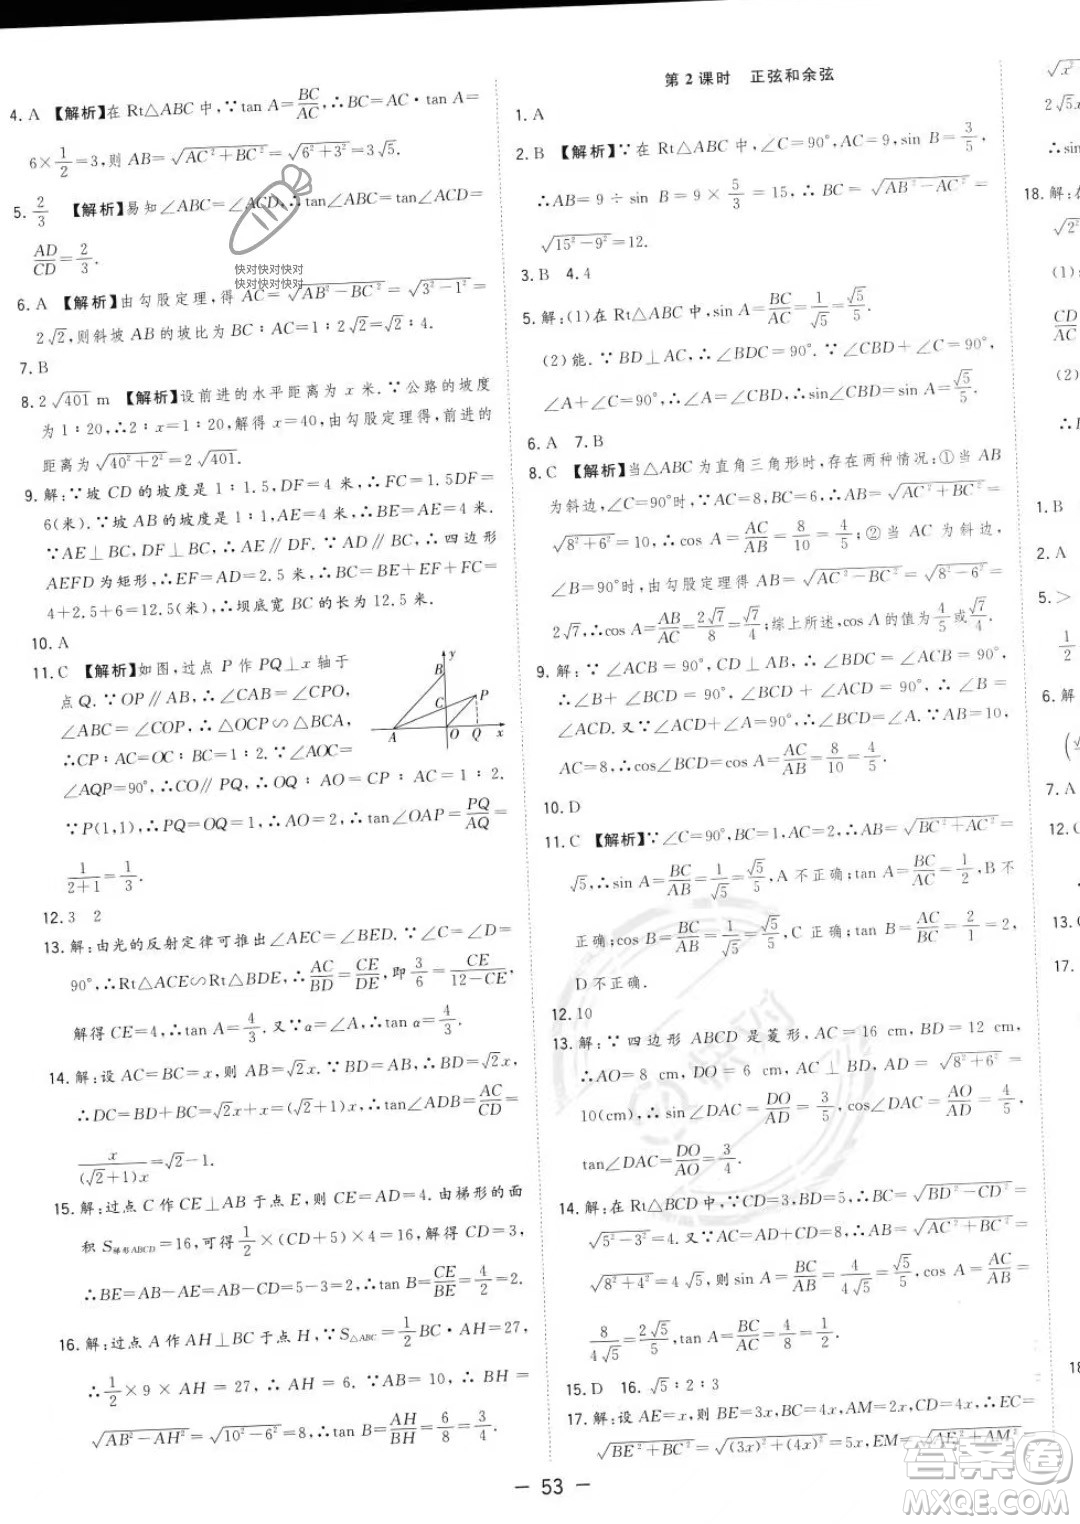 4. A 【解析】在 Rt△ABC 中,∵tan A=BC/AC,∴BC=AC·tan A=
6×1/2=3,则 AB=√(AC²+BC²)=√(6²+3²)=3√5.
5. 2/3 【解析】易知∠ABC=∠ACD,∴tan∠ABC=tan∠ACD=
AD/CD=2/3.
6. A 【解析】由勾股定理,得 AC=√(AB²-BC²)=√(3²-1²)=
2√2,则斜坡 AB 的坡比为 BC∶AC=1∶2√2=√2∶4.
7. B
8. 2√401 m 【解析】设前进的水平距离为 x 米.∵公路的坡度
为 1∶20,∴2∶x=1∶20,解得 x=40,由勾股定理得,前进的
距离为√(40²+2²)=2√401.
9. 解:∵坡 CD 的坡度是 1∶1.5,DF=4 米,∴FC=1.5DF=
6(米).∵坡 AB 的坡度是 1∶1,AE=4 米,∴BE=AE=4 米.
∵AE⊥BC,DF⊥BC,∴AE∥DF.∵AD∥BC,∴四边形
AEFD 为矩形,∴EF=AD=2.5 米,∴BC=BE+EF+FC=
4+2.5+6=12.5(米),∴坝底宽 BC 的长为 12.5 米.
10. A
11. C 【解析】如图,过点 P 作 PQ⊥x 轴于
点 Q.∵OP∥AB,∴∠CAB=∠CPO,
∠ABC=∠COP,∴△OCP∽△BCA,
∴CP∶AC=OC∶BC=1∶2.∵∠AOC=
∠AQP=90°,∴CO∥PQ,∴OQ∶AO=CP∶AC=1∶2.
∵P(1,1),∴PQ=OQ=1,∴AO=2,∴tan∠OAP=PQ/AQ=
1/(2+1)=1/3.
y
B
C
P
A
O
Q
x
12. 3 2
13. 解:由光的反射定律可推出∠AEC=∠BED.∵∠C=∠D=
90°,∴Rt△ACE∽Rt△BDE,∴AC/BD=CE/DE,即3/6=CE/(12-CE),
解得 CE=4,∴tan A=4/3.又∵α=∠A,∴tan α=4/3.
14. 解:设 AC=BC=x,则 AB=√2x.∵BD=AB,∴BD=√2x,
∴DC=BD+BC=√2x+x=(√2+1)x,∴tan∠ADB=AC/CD=
x/((√2+1)x)=√2-1.
15. 解:过点 C 作 CE⊥AB 于点 E,则 CE=AD=4.由梯形的面
积 S梯形ABCD=16,可得1/2×(CD+5)×4=16,解得 CD=3,
∴BE=AB-AE=AB-CD=5-3=2,∴tan B=CE/BE=4/2=2.
16. 解:过点 A 作 AH⊥BC 于点 H,∵S△ABC=1/2BC·AH=27,
∴1/2×9×AH=27,∴AH=6.∵AB=10,∴BH=
√(AB²-AH²)=√(10²-6²)=8,∴tan B=AH/BH=6/8=3/4.
第 2 课时 正弦和余弦
1. A
2. B 【解析】∵在 Rt△ABC 中,∠C=90°,AC=9,sin B=3/5,
∴AB=9÷sin B=9×5/3=15,∴BC=√(AB²-AC²)=
√(15²-9²)=12.
3. B 4. 4
5. 解:(1)在 Rt△ABC 中,sin A=BC/AC=1/√5=√5/5.
(2)能.∵BD⊥AC,∴∠BDC=90°.∵∠CBD+∠C=90°,
∠A+∠C=90°,∴∠A=∠CBD,∴sin∠CBD=sin A=√5/5.
6. A 7. B
8. C 【解析】当△ABC 为直角三角形时,存在两种情况:①当 AB
为斜边,∠C=90°时,由勾股定理得 AB=√(AC²+BC²)=
√(8²+6²)=10,∴cos A=AC/AB=8/10=4/5;②当 AC 为斜边,
∠B=90°时,由勾股定理得 AB=√(AC²-BC²)=√(8²-6²)=
2√7,∴cos A=AB/AC=2√7/8=√7/4;综上所述,cos A 的值为4/5或√7/4.
9. 解:∵∠ACB=90°,CD⊥AB,∴∠BDC=∠ACB=90°,
∴∠B+∠BCD=∠BCD+∠ACD=90°,∴∠B=
∠ACD.又∵∠ACD+∠A=90°,∴∠BCD=∠A.∵AB=10,
AC=8,∴cos∠BCD=cos A=AC/AB=8/10=4/5.
10. D
11. C 【解析】∵∠C=90°,BC=1,AC=2,∴AB=√(BC²+AC²)=
√5,∴sin A=BC/AB=1/√5=√5/5,A 不正确;tan A=BC/AC=1/2,B 不
正确;cos B=BC/AB=1/√5=√5/5,C 正确;tan B=AC/BC=2/1=2,
D 不正确.
12. 10
13. 解:∵四边形 ABCD 是菱形,AC=16 cm,BD=12 cm,
∴AO=8 cm,DO=6 cm,AC⊥BD,∴AD=√(8²+6²)=
10(cm),∴sin∠DAC=DO/AD=3/5,cos∠DAC=AO/AD=4/5,
tan∠DAC=DO/AO=3/4.
14. 解:在 Rt△BCD 中,∵CD=3,BD=5,∴BC=√(BD²-CD²)=
√(5²-3²)=4.又∵AC=AD+CD=8,∴AB=√(AC²+BC²)=
√(8²+4²)=4√5,则 sin A=BC/AB=4/(4√5)=√5/5,cos A=AC/AB=
8/(4√5)=2√5/5,tan A=BC/AC=4/8=1/2.
15. D 16. √5∶2∶3
17. 解:设 AE=x,则 BE=3x,BC=4x,AM=2x,∴EC=
√(BE²+BC²)=√((3x)²+(4x)²)=5x,EM=√(AE²+AM²)=
2√5x
18. 解:在
(1)
CD/AC
(2)
1. B
2. A
5. >
1/2
6. 解
7. A
12. C
13.
17.
18
快对快对快对
快对快对快对
答案圈
MXQE.COM
— 53 —